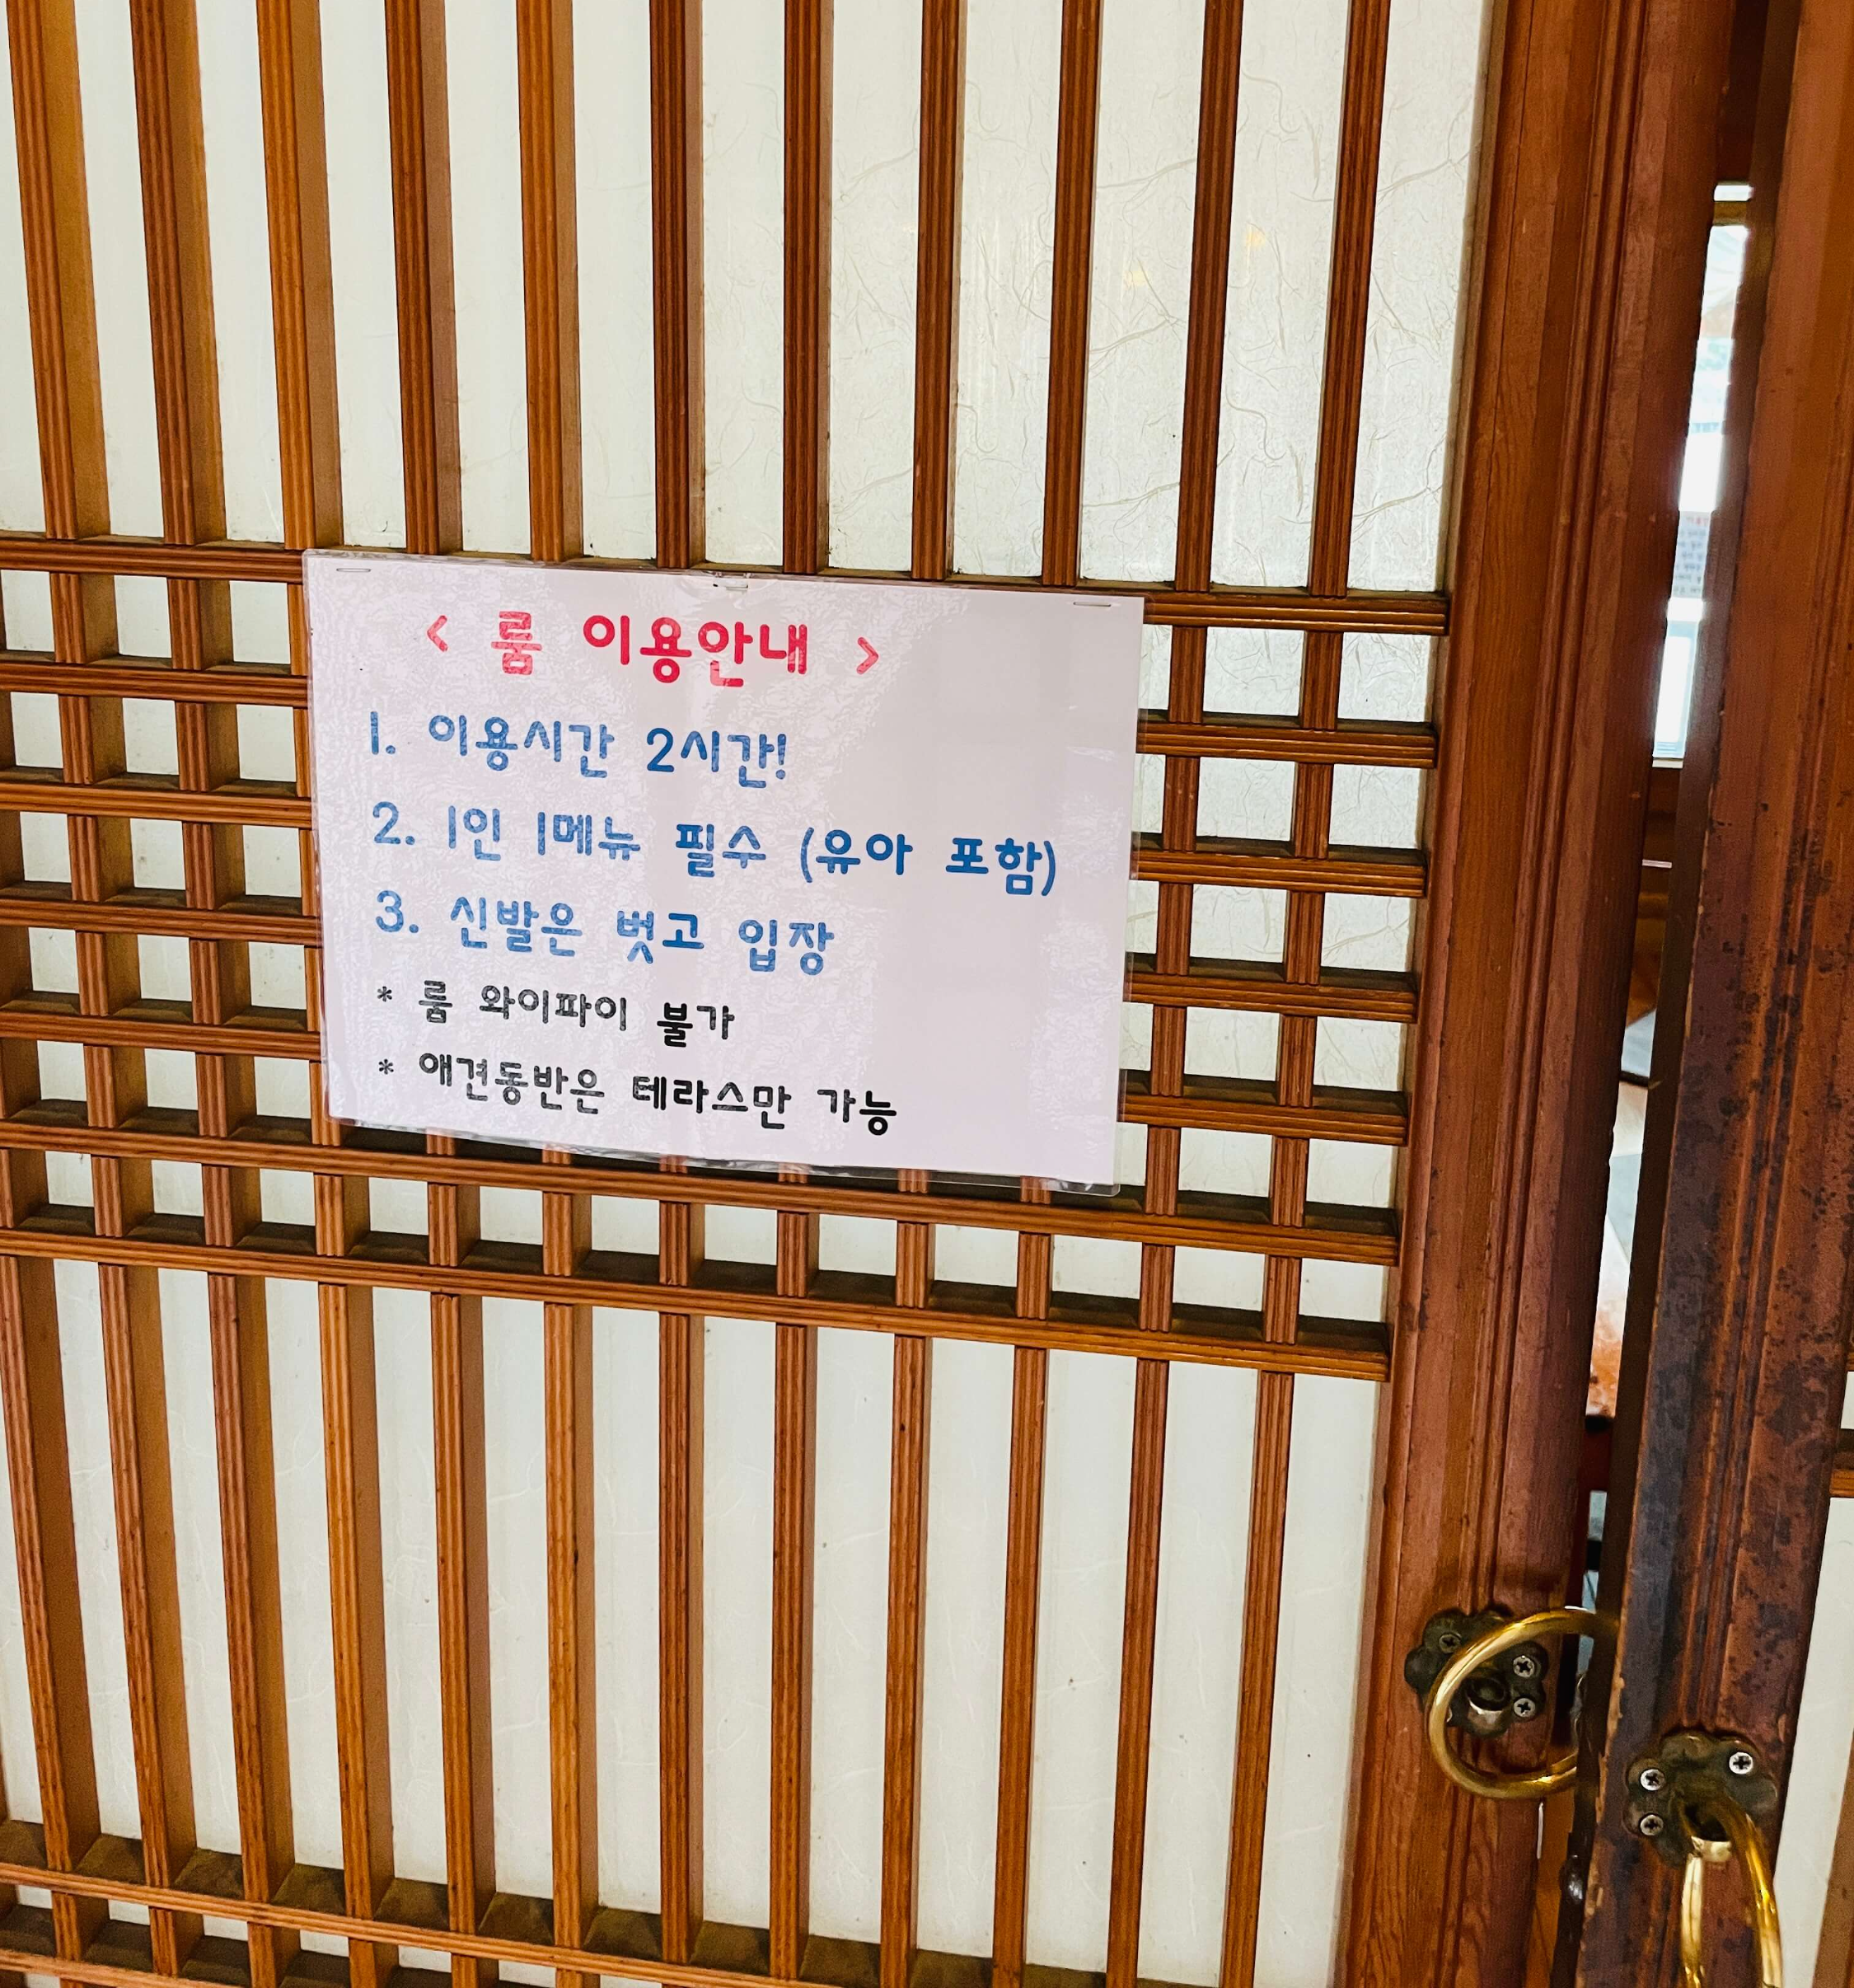 < 룸 이용안내 >
1. 이용시간 2시간!
2. 1인 1메뉴 필수 (유아 포함)
3. 신발은 벗고 입장
* 룸 와이파이 불가
* 애견동반은 테라스만 가능